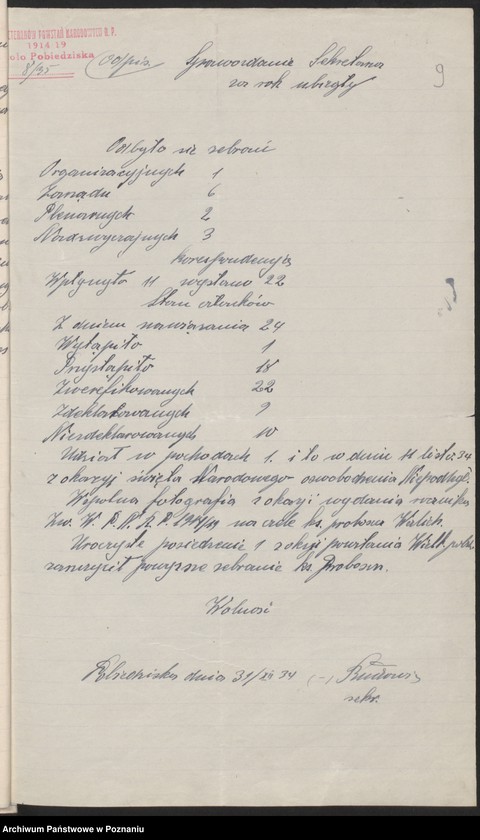 POWSTAŃ NARODOWYCH R. P.
1914 19
Koło Pobiedziska
8/35
Odpis
Sprawozdanie Sekretarza
za rok ubiegły
9
Odbyło się zebrań
Organizacyjnych 1
Zarządu 6
Plenarnych 2
Nadzwyczajnych 3
Korespondencyj
Wpłynęło 11 wysłano 22
Stan członków
Z dniem zawiązania 24
Wystąpiło 1
Przystąpiło 18
Zweryfikowanych 22
Zdeklarowanych 9
Niezdeklarowanych 10
Udział w pochodach 1. i to w dniu 11 list. 34
z okazyj święta Narodowego oswobodzenia Niepodległ.
Wspólna fotografia z okazji wydania
Zw. W. P. N. R. P. 1914/19 na czele ks. proboszcz
Uroczyste posiedzenie 1 z okazji powstania Wielkopolsk.
zaszczycił powyższe zebranie ks. Proboszcz.
Wolność
Pobiedziska dnia 31/XII 34 (-)
sekr.
Archiwum Państwowe w Poznaniu